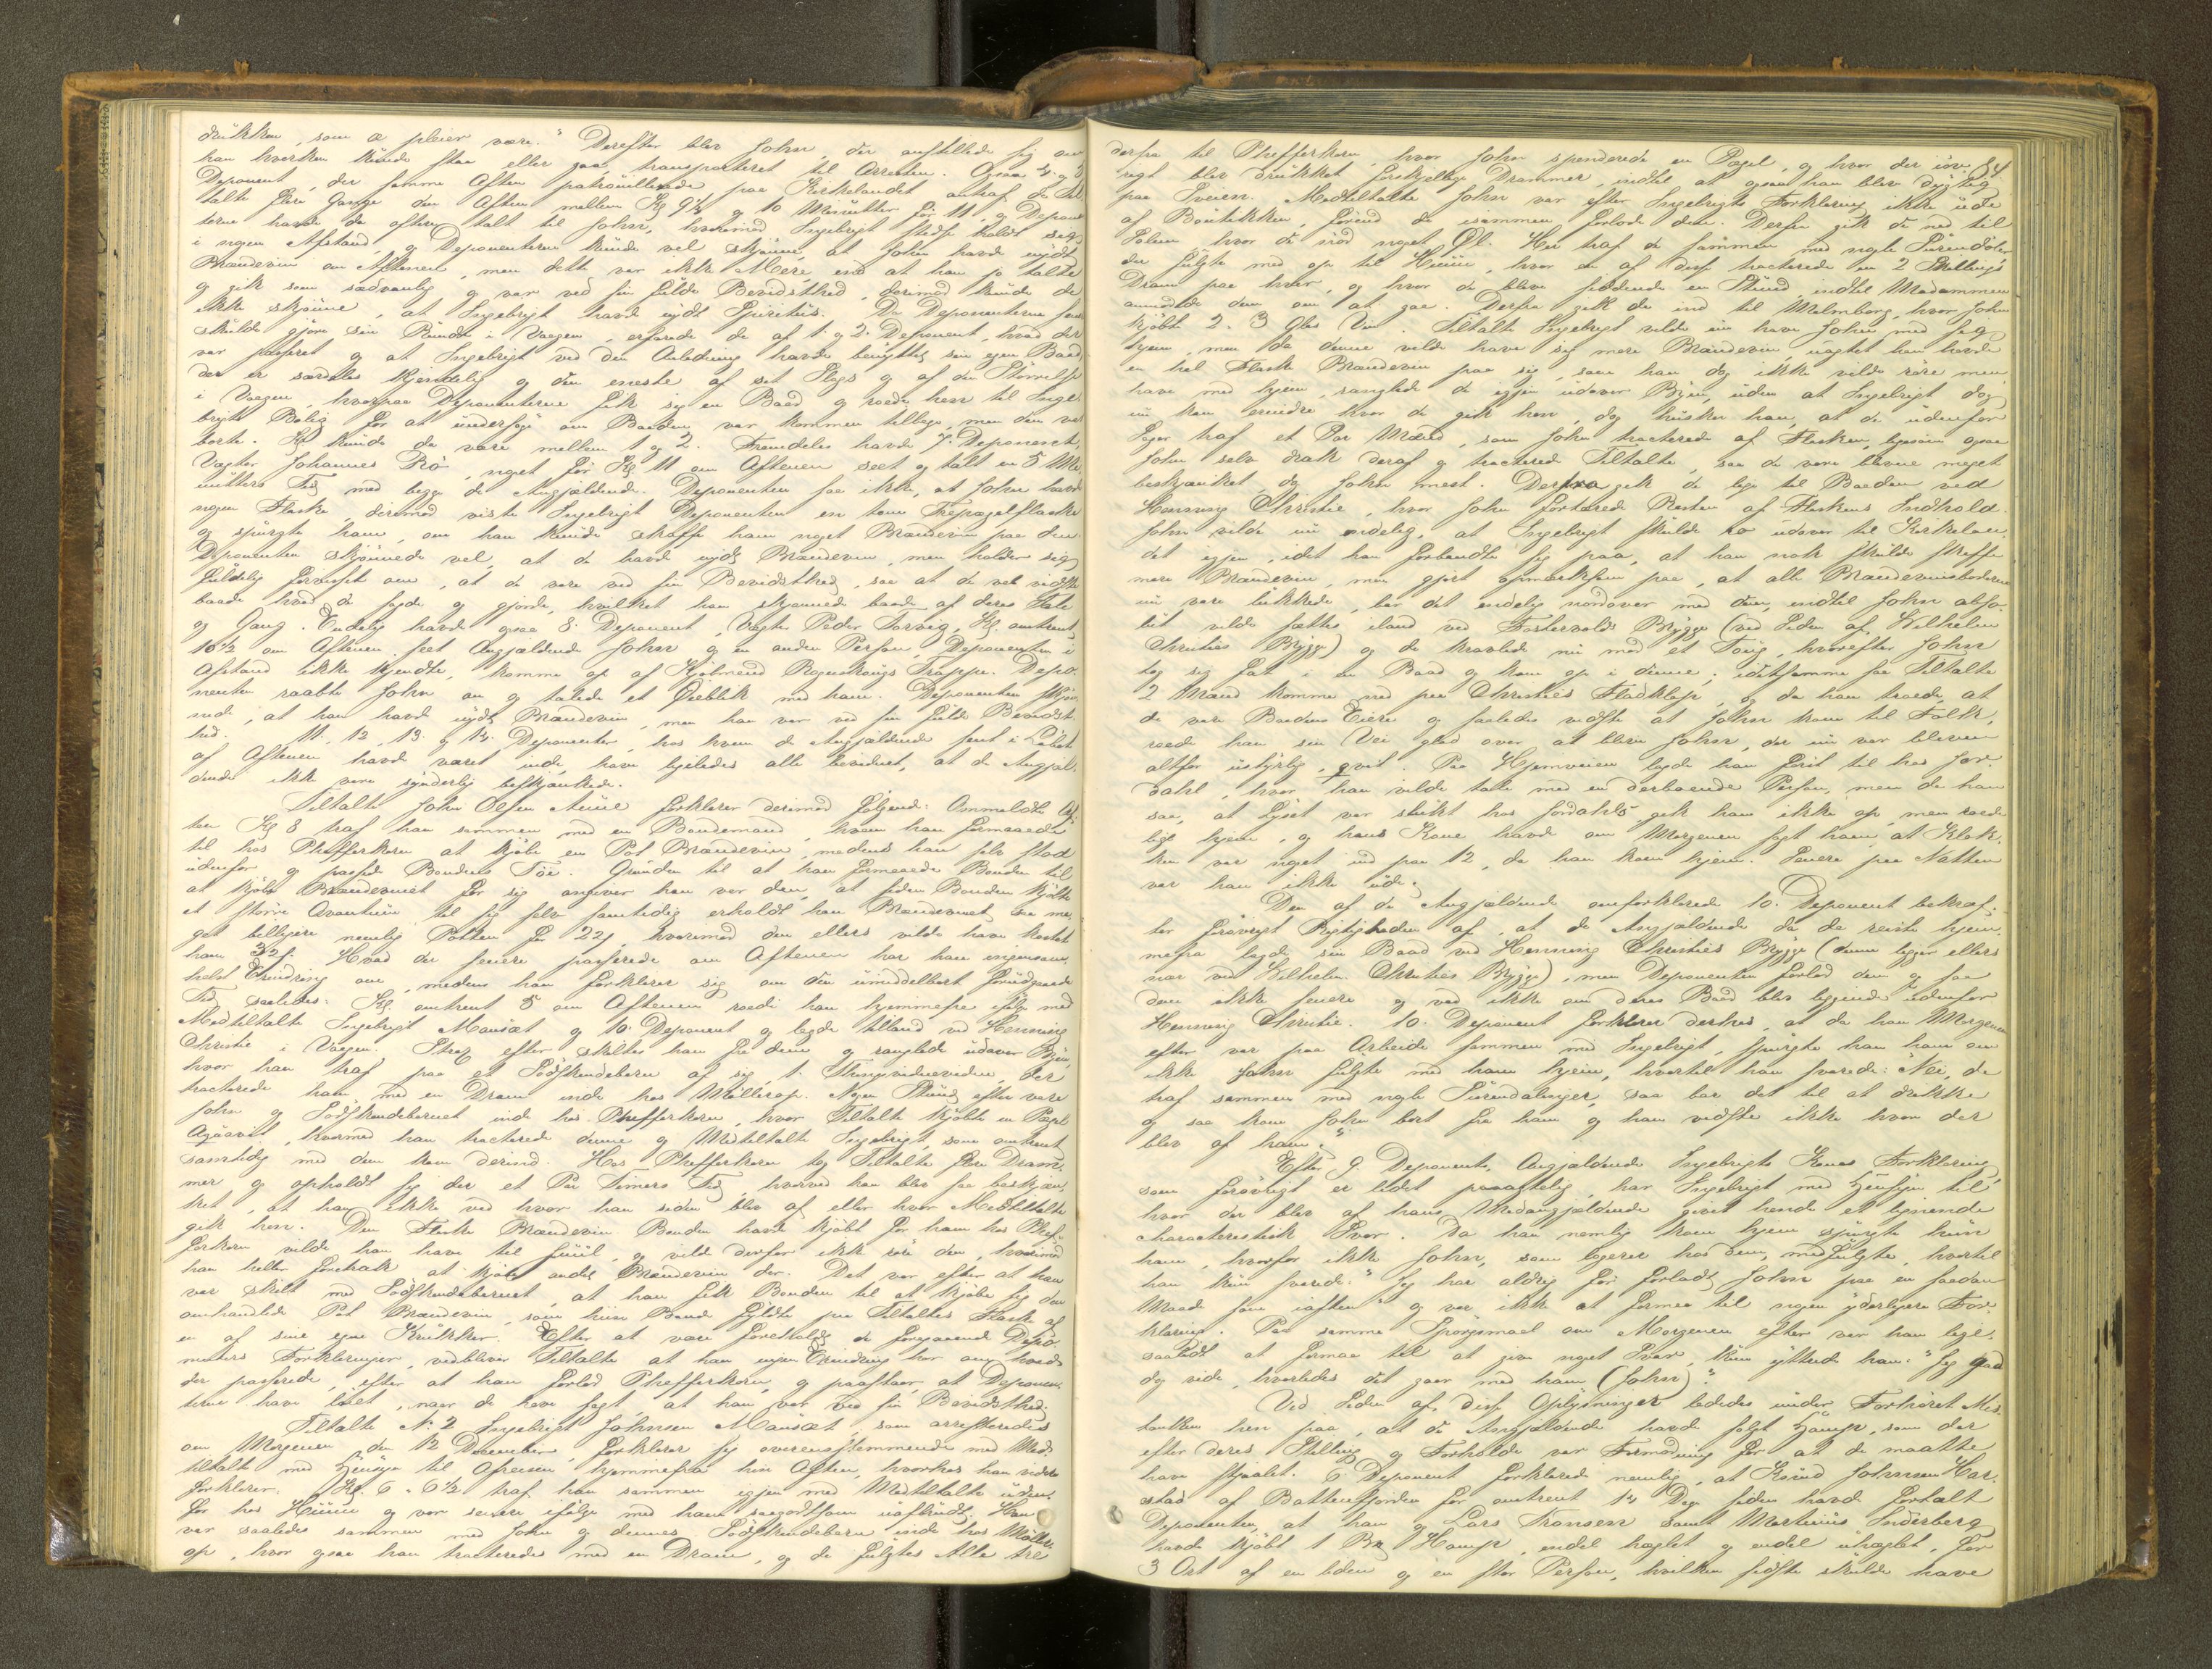 drukken, som æ pleier være." Derefter blev John, der anstillede sig om
han hverken kunde staa eller gaa, transporteret til Arresten. Ogsaa 4 og 3
Deponent, der samme Aften patrouillerede paa Kirkelandet antraf de Til
talte flere Gange den Aften mellem Kl 9½ og 10 Minutter før 11, og Depone
terne havde da oftere talt til John, hvorimod Ingebrigt stedse holdt sig
i nogen Afstand, og Deponenterne kunde vel skjønne, at John havde nydt
Brændeviin om Aftenen, men dette var ikke Mere, end at han jo talte
og gik som sædvanlig og var ved sin fulde Bevidsthed, derimod kunde de
ikke skjønne, at Ingebrigt havde nydt Spirituo. Da Deponenterne
skulde gjøre sin Runde i Vaagen, erfarede de af 1. og 2. Deponent, hvad der
var passeret og at Ingebrigt ved den Anledning havde benyttet sin egen Baad,
der er særdeles kjendelig og den eneste af set Slags og af den Størrelse
i Vaagen, hvorpaa Deponenterne fik sig en Baad og roede hen til Inge
brigts Bolig for at undersøge om Baaden var kommen tilbage, men den var
borte. Kl kunde da være mellem 1 og 2. Fremdeles havde 7. Deponent,
Vægter Johannes Rø, noget før Kl 11 om Aftenen, seet og talt en 5 Mi
nutters Tid med begge de Angjældende. Deponenten saa ikke, at John havde
nogen Flaske, derimod viste Ingebrigt Deponenten en tom Trepægelflaske
og spurgte ham, om han kunde skaffe ham noget Brændeviin paa den.
Deponenten skjønnede vel, at de havde nydt Brændeviin, men holder sig
fuldelig forvisset om, at de vare ved sin Bevidsthed, saa at de vel vidste
baade hvad de sagde og gjorde, hvilket han skjønnede baade af deres Tale
og Gang. Endelig havde ogsaa 8. Deponent, Vægter Peder Sorvig, Kl. omtrent
10½ om Aftenen seet Angjældende John og en anden Person, Deponenten i
Afstand ikke kjendte, komme op af Kjøbmand Trappe. Depo-
nenten raabte John an og talede et Øieblik med ham. Deponenten skjøn
nede, at han havde nydt Brændeviin, men han var ved sin fulde Bevidst
hed. 11. 12. 13. og 14. Deponenter, hos hvem de Angjældende sent i Løbet
af Aftenen havde været inde, have ligeledes alle bevidnet, at de Angjæl
dende ikke vare synderlig beskjænkede.
Tiltalte John Olsen forklarer derimod følgende: Ommeldte Af-
ten Kl 8 traf han sammen med en Bondemand, hvem han formaaede
til hos Pfefferkorn at kjøbe en Pot Brændeviin, medens han selv stod
udenfor og passede Bondens Tøi. Grunden til at han formaaede Bonden til
at kjøbe Brændevinet for sig angiver han var den, at siden Bonden kjøbte
et større Qvantum til sig selv samtidig erholdt han Brændevinet saa me
get billigere nemlig Potten for 22 ſ, hvorimod den ellers vilde have kostet
ham 32 ſ. Hvad der senere passerede om Aftenen har han ingensom
helst Erindring om, medens han forklarer sig om den umiddelbart forudgaaede
Tid saaledes: Kl. omtrent 5 om Aftenen roede han hjemmefra ifølge med
Medtiltalte Ingebrigt Mauset og 10. Deponent og lagde tilland ved Henning
Christie i Vaagen. Strax efter skiltes han fra dem og ranglede udover Byen,
hvor han traf paa et Sødskendebarn af sig, 1. Thingvidnevidne, der
tracterede ham med en Dram inde hos Møllerop. Nogen Stund efter vare
John og Sødskendebarnet inde hos Pfefferkorn, hvor Tiltalte kjøbte en Pægel
Aqvavit, hvormed han tracterede denne og Medtiltalte Ingebrigt, som omtrent
samtidig med dem kom derind. Hos Pfefferkorn tog Tiltalte flere Dram
mer og opholdt sig der et Par Timers Tid, hvorved han blev saa beskjæn
ket, at han ikke ved hvor han siden blev af eller hvor Medtiltalte
gik hen. Den Flaske Brændeviin Bonden havde kjøbt for ham hos Pfef
ferkorn vilde han have til Juul, og vilde derfor ikke røre den, hvorimod
han heller foretrak at kjøbe andet Brændeviin der. Det var efter at han
var skilt med Sødskendebarnet, at han fik Bonden til at kjøbe sig den
omhandlede Pot Brændeviin, som hiin Bonde fyldte paa Tiltaltes Flaske af
en af sine egne Krukker. Efter at være foreholdt de foregaaende Depo
nenters Forklaringer, vedbliver Tiltalte at han ingen Erindring har om hvad
der passerede, efter at han forlod Pfefferkorn, og paastaar, at Deponen
terne have løiet, naar de have sagt, at han var ved sin Bevidsthed.
Tiltalte No 2 Ingebrigt Johnsen Mauset som arresteredes
om Morgenen den 12 December, forklarer sig overensstemmende med Med
tiltalte med Hensyn til Afreisen hjemmefra hin Aften, hvorhos han videre
forklarer. Kl. 6 a 6½ traf han sammen igjen med Medtiltalte uden
for hos Huus og var senere ifølge med ham saagodtsom uafbrudt. Han
var saaledes sammen med John og dennes Sødskendebarn inde hos Møller
op, hvor ogsaa han tracteredes med en Dram, og de fulgtes Alle tre
84.
derfra til Pfefferkorn, hvor John spenderede en Pægel, og hvor der iøv
rigt blev drukket forskjellige Drammer, indtil at ogsaa han blev dygtig
paa Sveien. Medtiltalte John var efter Ingebrigts Forklaring ikke ude
af Boutikken, førend de isammen forlode den. Derfra gik de ned til
, hvor de nød noget Øl. Her traf de sammen med nogle Surendøler
der fulgte med op til Huus, hvor en af disse tracterede en 2 Skillings
Dram paa hver, og hvor de bleve siddende en Stund, indtil Madammen
anmodede dem om at gaa. Derfra gik de ind til Malmborg, hvor John
kjøbte 2. 3 Glas Viin. Tiltalte Ingebrigt vilde nu have John med sig
hjem, men da denne vilde have sig mere Brændeviin, uagtet han havde
en hel Flaske Brændeviin paa sig, som han dog ikke vilde røre men
have med hjem, ranglede de igjen udover Byen, uden at Ingebrigt dog
nu kan erindre hvor de gik hen, dog husker han, at de udenfor
traf et Par Mænd, som John tracterede af Flasken, ligesom ogsaa
John selv drak deraf og tracterede Tiltalte, saa de vare blevne meget
beskjænket, dog John mest. Derfra gik de lige til Baaden ved
Henning Christie, hvor John fortærede Resten af Flaskens Indhold.
John vilde nu endelig, at Ingebrigt skulde ro udover til Kirkelan
det igjen, idet han forbandte sig paa, at han nok skulde skaffe
mere Brændeviin, men gjort opmærksom paa, at alle Brændeviinsboderne
nu vare lukkede, bar det endelig nordover med dem, indtil John abso-
lut vilde sættes iland ved Fostervolds Brygge (ved Siden af Wilhelm
Christies Brygge) og de kravlede nu med et Toug, hvorefter John
tog sig fat i en Baad og kom op i denne; idetsamme saa Tiltalte
2 Mænd komme ned paa Christies Fladklop, og da han troede, at
de vare Baadens Eiere og saaledes vidste at John kom til Folk,
roede han sin Vei glad over at blive John, der nu var bleven
altfor ustyrlig, qvit. Paa Hjemveien lagde han først til hos Jor-
dahl, hvor han vilde tale med en derboende Person, men da han
saa, at Lyset var slukt hos Jordahls gik han ikke op, men roede
lige hjem, og hans Kone havde om Morgenen sagt ham, at Klok
ken var noget ind paa 12, da han kom hjem. Senere paa Natten
var han ikke ude.
Den af de Angjældende omforklarede 10. Deponent bekræf-
ter forøvrigt Rigtigheden af, at de Angjældende da de reiste hjem
mefra lagde sin Baad ved Henning Christies Brygge (denne ligger ellers
nær ved Wilhelm Christies Brygge), men Deponenten forlod dem og saa
dem ikke senere og ved ikke om deres Baad blev liggende udenfor
Henning Christie. 10. Deponent forklarer derhos, at da han Morgenen
efter var paa Arbeide sammen med Ingebrigt, spurgte han ham om
ikke John fulgte med ham hjem, hvortil han svarede: "Nei, de
traf sammen med nogle Surendalinger, saa bar det til at drikke
og saa kom John bort fra ham og han vidste ikke hvor der
blev af ham."
Efter 9. Deponents, Angjældende Ingebrigts Kones Forklaring,
som forøvrigt er lidet paaagtelig, har Ingebrigt med Hensyn til
hvor der blev af hans Medangjældende givet hende et lignende
characteristisk Svar. Da han nemlig kom hjem spurgte hun
ham, hvorfor ikke John, som logerer hos dem, medfulgte, hvortil
han kun svarede: "Jeg har aldrig før forladt John paa en saadan
Maade som iaften" og var ikke at formaa til nogen yderligere For-
klaring. Paa samme Spørgsmaal om Morgenen efter var han lige-
saalidt at formaa til at give noget Svar, kun yttrede han: "Jeg gad
dog vide, hvorledes det gaar med ham (John)."
Ved Siden af disse Oplysninger lededes under Forhøret Mis
tanken hen paa, at de Angjældende havde solgt Hamp, som der
efter deres Stilling og Forholde var Formodning for at de maatte
have stjaalet. 6 Deponent forklarede nemlig, at Knud Johnsen Har-
stad af Battenfjorden for omtrent 14 Dage siden havde fortalt
Deponenten, at han og Lars Tronsen samt Martinus Søderberg
havde kjøbt 1 Hamp, endel hæglet og endel uhæglet, for
3 Ort af en liden og en stor Person, hvilken sidste skulde have